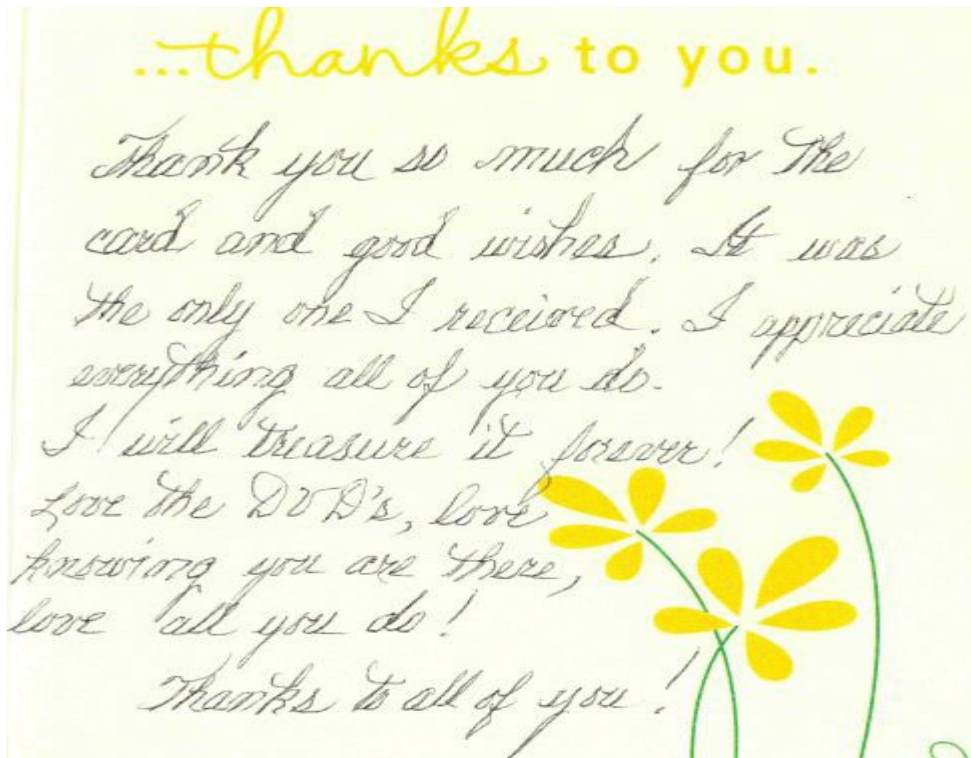 ...thanks to you.
Thank you so much for the
card and good wishes. It was
the only one I received. I appreciate
everything all of you do.
I will treasure it forever!
Love the DVD's, love
knowing you are there,
love all you do!
Thanks to all of you!